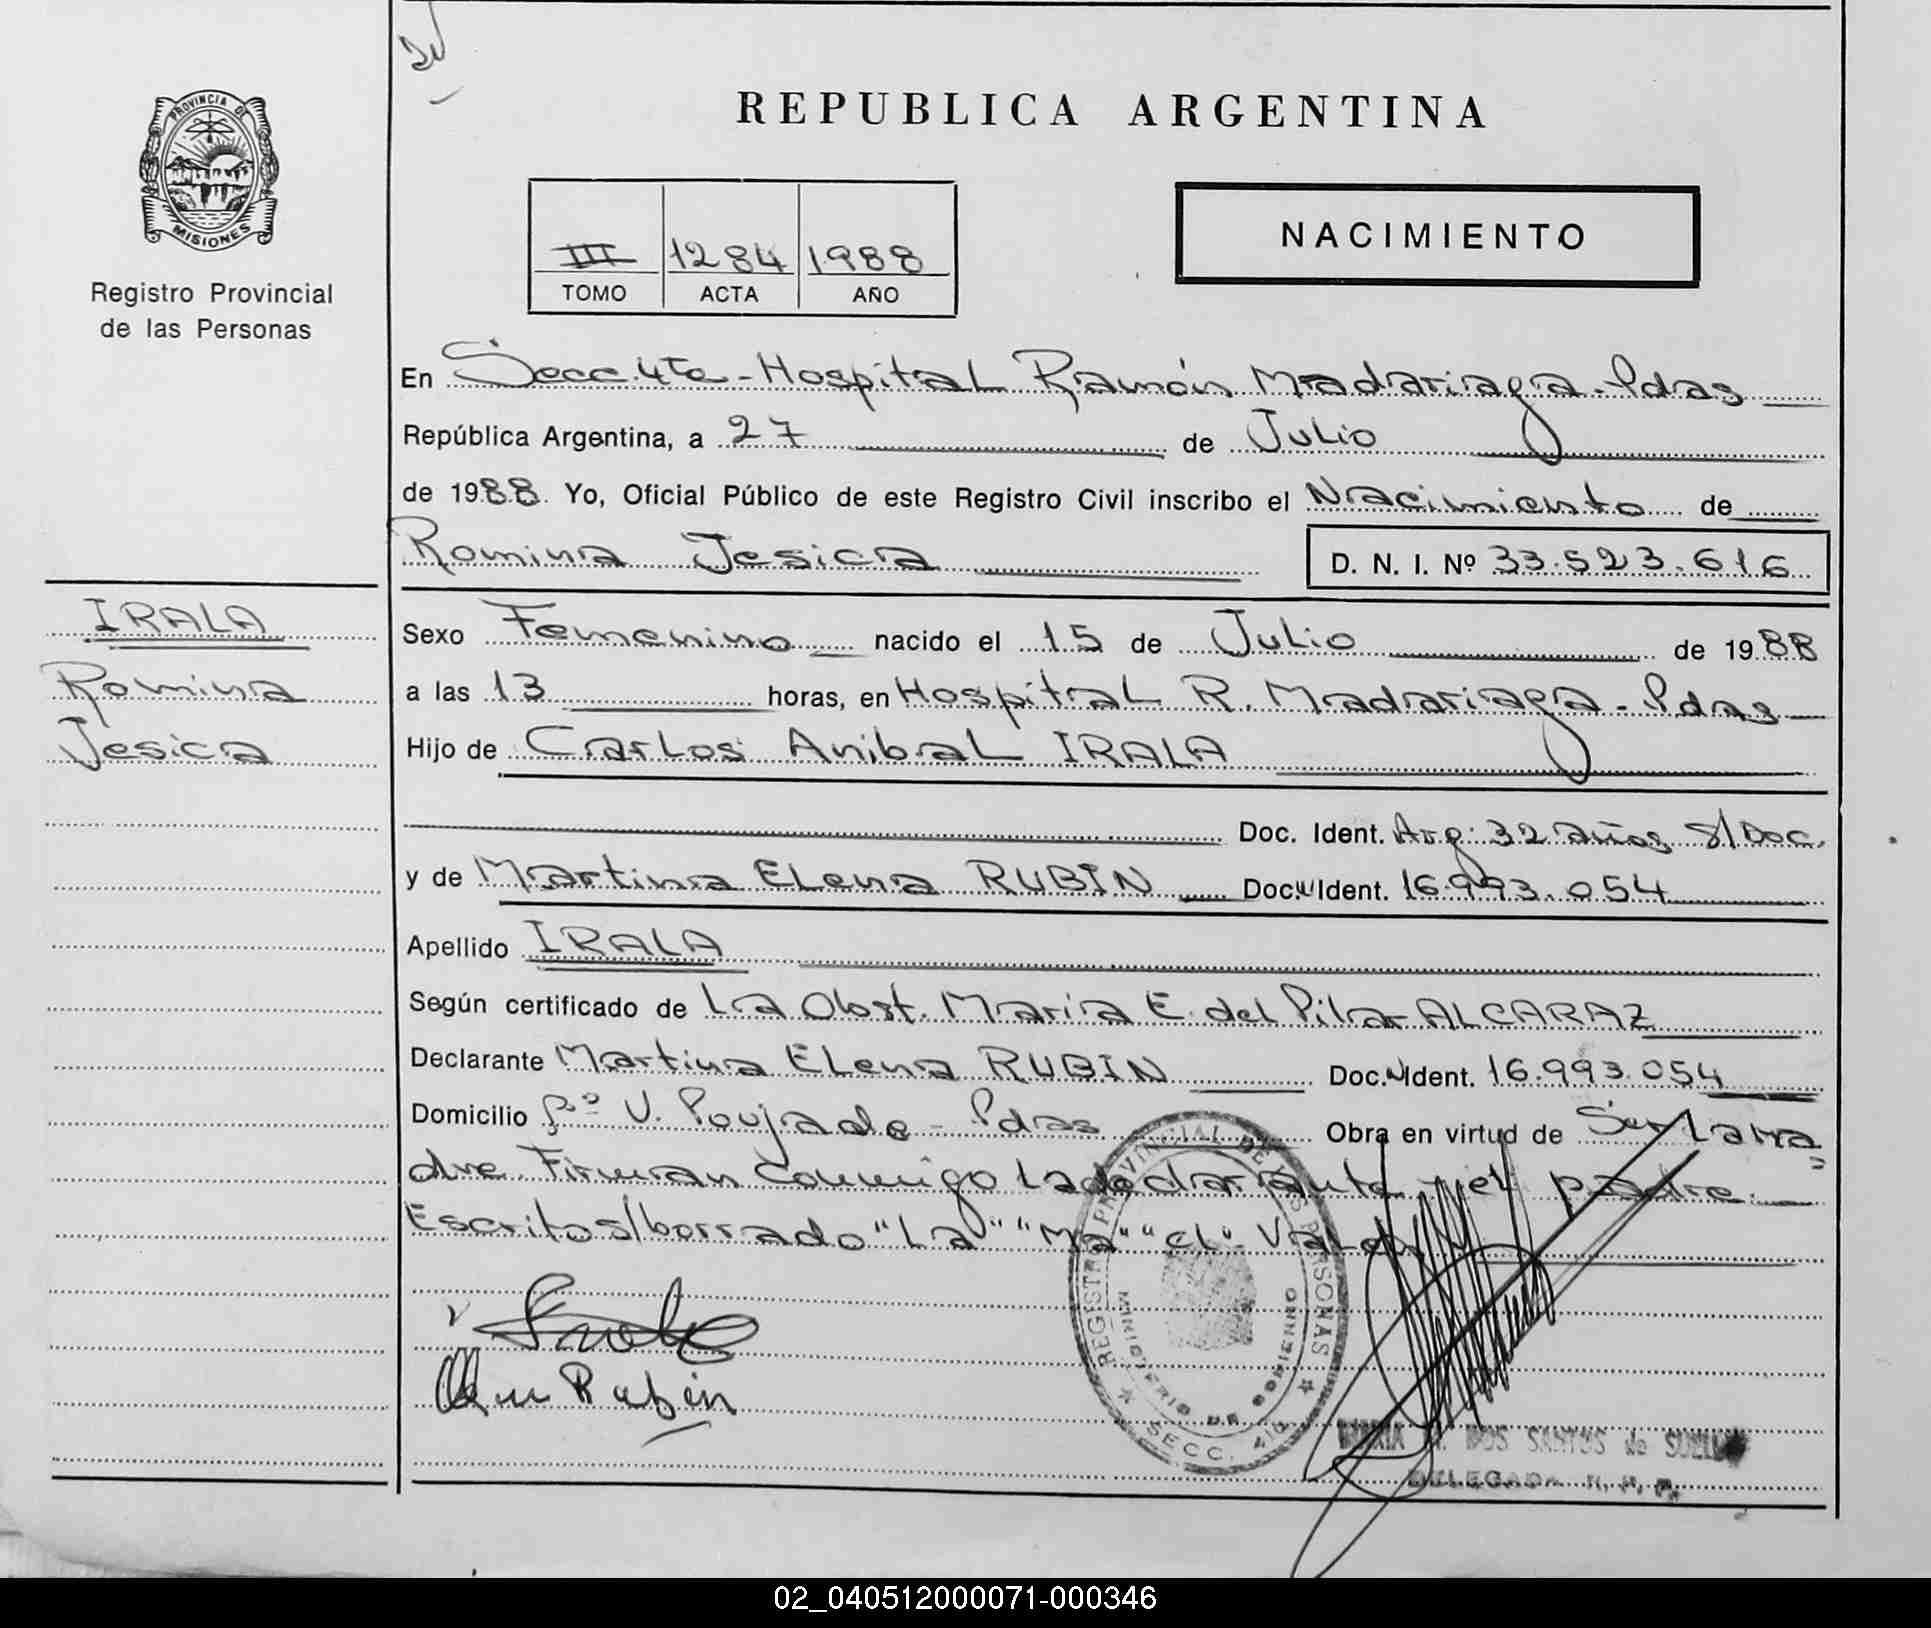 REPUBLICA ARGENTINA
PROVINCIA DE
MISIONES
Registro Provincial
de las Personas
III 1284 1988
TOMO ACTA AÑO
NACIMIENTO
En Secc. 4ta - Hospital Ramón Madariaga - Pdas
República Argentina, a 27 de Julio
de 1988. Yo, Oficial Público de este Registro Civil inscribo el Nacimiento de
Romina Jesica D. N. I. Nº 33.523.616
IRALA
Romina
Jesica
Sexo Femenino nacido el 15 de Julio de 1988
a las 13 horas, en Hospital R. Madariaga - Pdas
Hijo de Carlos Anibal IRALA
Doc. Ident. Arg: 32 años s/Doc.
y de Martina Elena RUBIN Doc. Ident. 16.993.054
Apellido IRALA
Según certificado de La Obst. Maria E. del Pilar ALCARAZ
Declarante Martina Elena RUBIN Doc. Ident. 16.993.054
Domicilio Bº V. Poujade - Pdas Obra en virtud de Ser la ma
dre. Firman conmigo la declarante y el padre.
Escrito s/borrado "La" "Ma" "el". Vale.
Rubin
REGISTRO PROVINCIAL DE LAS PERSONAS
MINISTERIO DE GOBIERNO
SECC. 4ta
MARIA DOS SANTOS de
DELEGADA R. P. P.
02_040512000071-000346